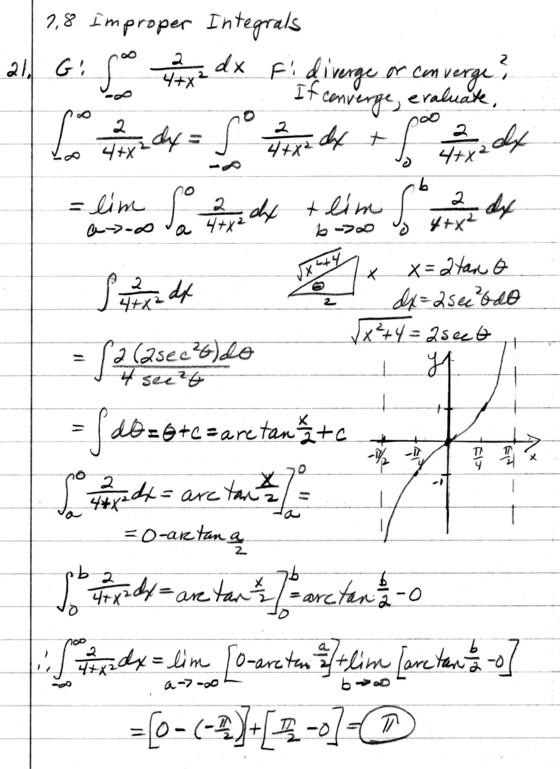 7.8 Improper Integrals
21. G: ∫_{-∞}^{∞} 2/(4+x²) dx F: diverge or converge?
If converge, evaluate.
∫_{-∞}^{∞} 2/(4+x²) dx = ∫_{-∞}^{0} 2/(4+x²) dx + ∫_{0}^{∞} 2/(4+x²) dx
= lim_{a→-∞} ∫_{a}^{0} 2/(4+x²) dx + lim_{b→∞} ∫_{0}^{b} 2/(4+x²) dx
∫ 2/(4+x²) dx √(x²+4) θ 2 x x = 2 tan θ
dx = 2 sec²θ dθ
√(x²+4) = 2 sec θ
= ∫ 2(2sec²θ)dθ / 4 sec²θ
= ∫ dθ = θ + c = arctan x/2 + c
y
1
-π/2 -π/4 π/4 π/2 x
-1
∫_{a}^{0} 2/(4+x²) dx = arctan x/2 ]_{a}^{0} =
= 0 - arctan a/2
∫_{0}^{b} 2/(4+x²) dx = arctan x/2 ]_{0}^{b} = arctan b/2 - 0
∴ ∫_{-∞}^{∞} 2/(4+x²) dx = lim_{a→-∞} [0 - arctan a/2] + lim_{b→∞} [arctan b/2 - 0]
= [0 - (-π/2)] + [π/2 - 0] = π